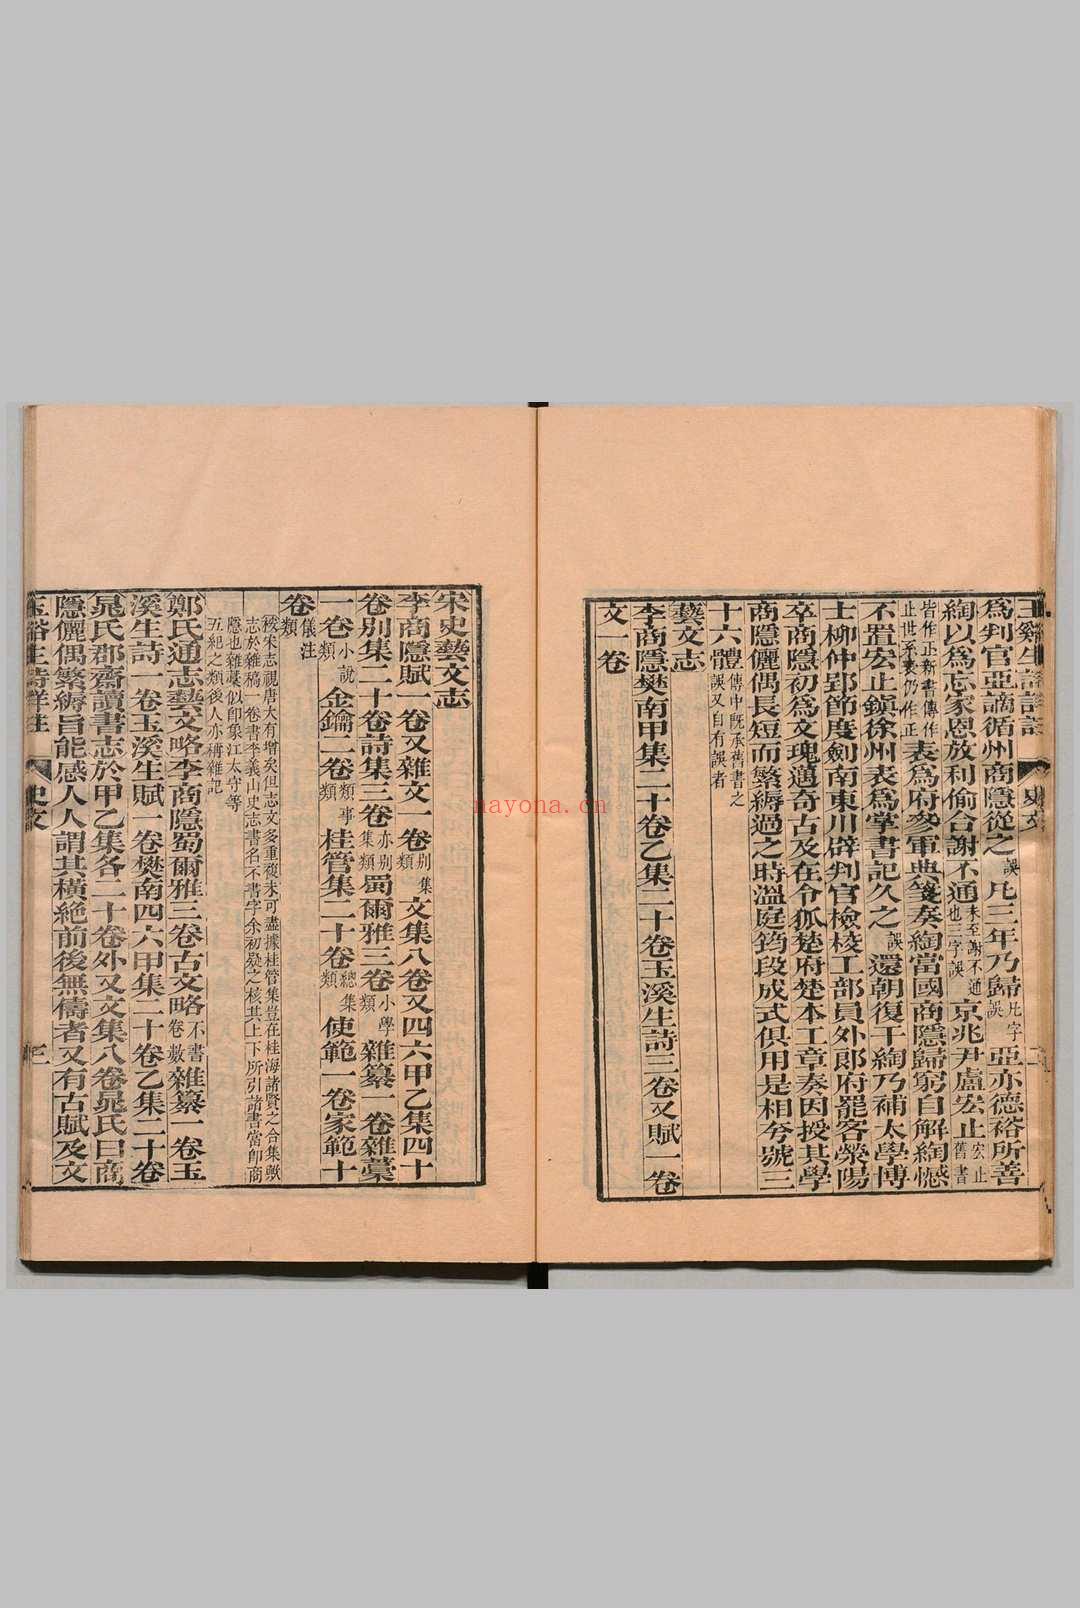 玉谿生詩詳註 史文 二
爲判官亞謫循州商隱從之誤凡三年乃歸凡字誤亞亦德裕所善
綯以爲忘家恩放利偷合謝不通未至謝不通也三字誤京兆尹盧宏止宏止舊書
皆作正新書傳作止世系表仍作正表爲府參軍典箋奏綯當國商隱歸窮自解綯憾
不置宏止鎮徐州表爲掌書記久之誤還朝復干綯乃補太學博
士柳仲郢節度劍南東川辟判官檢校工部員外郎府罷客滎陽
卒商隱初爲文瑰邁奇古及在令狐楚府楚本工章奏因授其學
商隱儷偶長短而繁縟過之時溫庭筠段成式俱用是相夸號三
十六體傳中旣承舊書之誤又自有誤者
藝文志
李商隱樊南甲集二十卷乙集二十卷玉溪生詩三卷又賦一卷
文一卷
宋史藝文志
李商隱賦一卷又雜文一卷別集類文集八卷又四六甲乙集四十
卷別集二十卷詩集三卷亦別集類蜀爾雅三卷小學類雜纂一卷雜藁
一卷小說類金鑰二卷類事類桂管集二十卷總集類使範一卷家範十
卷儀注類
按宋志視唐大有增矣但志文多重複未可盡據桂管集豈在桂海諸賢之合集歟
志於雜稿一卷書李義山史志書名不書字余初疑之核其上下所引諸書當卽商
隱也雜藁似卽象江太守等
五紀之類後人亦稱雜記
鄭氏通志藝文略李商隱蜀爾雅三卷古文略不書卷數雜纂一卷玉
溪生詩一卷玉溪生賦一卷樊南四六甲集二十卷乙集二十卷
晁氏郡齋讀書志於甲乙集各二十卷外又文集八卷晁氏曰商
隱儷偶繁縟旨能感人人謂其橫絶前後無儔者又有古賦及文
玉谿生詩詳註 史文 三
nayona.cn